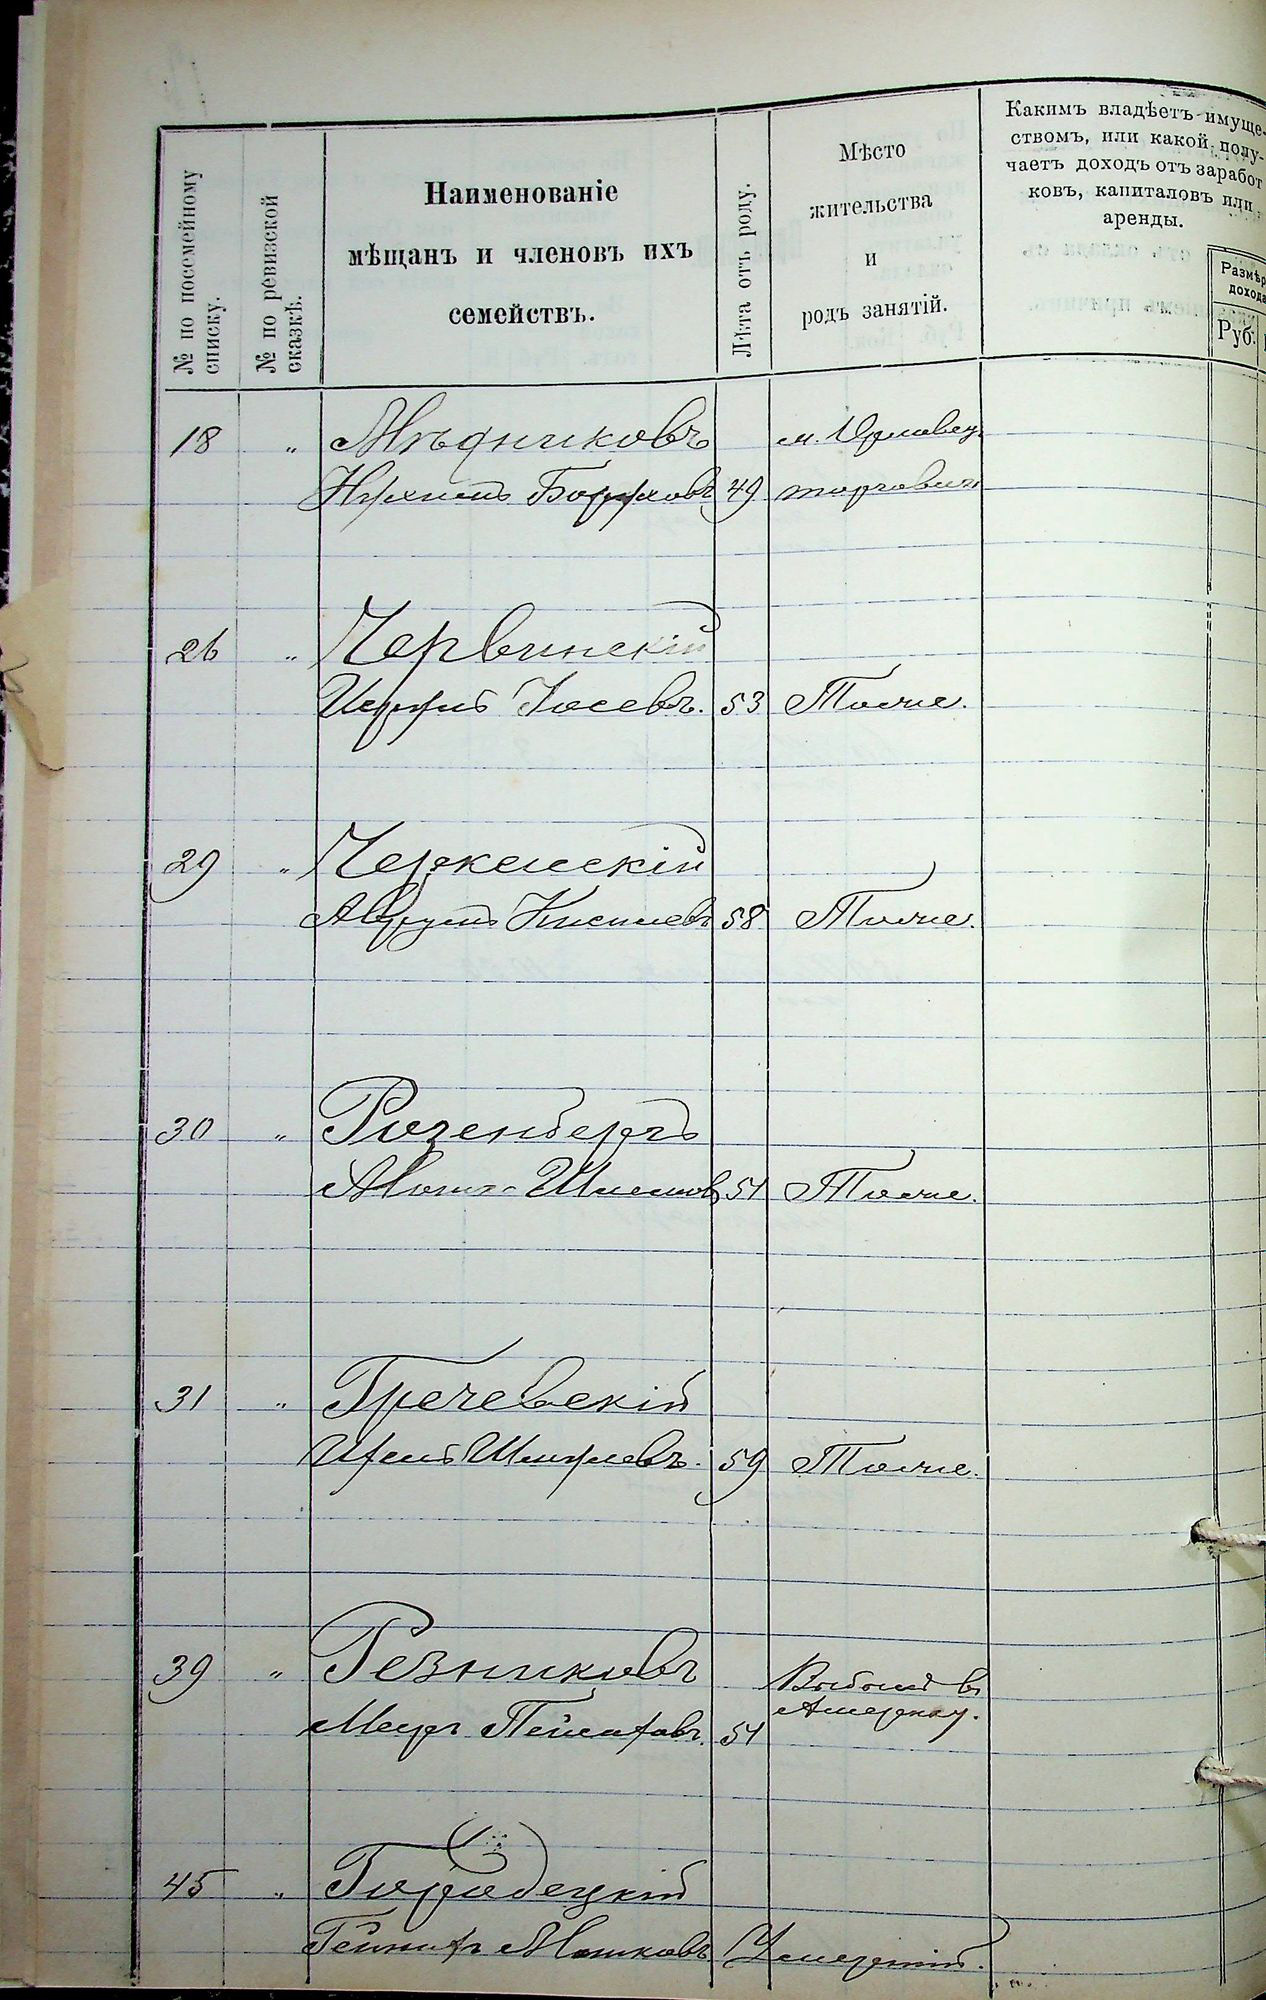 № по посемейному
списку.
№ по ревизской
сказкѣ.
Наименованіе
мѣщанъ и членовъ ихъ
семействъ.
Лѣта отъ роду.
Мѣсто
жительства
и
родъ занятій.
Каким владѣетъ имуще-
ствомъ, или какой полу-
чаетъ доходъ отъ заработ
ковъ, капиталовъ или
аренды.
Размѣр
дохода
Руб.
18 " Мѣдниковъ м. Орловец
Нухимъ Боруховъ 49 торговецъ
26 " Червинскій
Исруль Іосевъ. 53 Тоже.
29 " Черкасскій
Аврумъ Кисилевъ 58 Тоже.
30 " Розенбергъ
Мошко 51 Тоже.
31 " Гречевскій
Шмулевъ. 59 Тоже.
39 " Резниковъ Выбылъ в
Америку.
Меер 51
45 " Городецкій
Мошковъ Умершій.